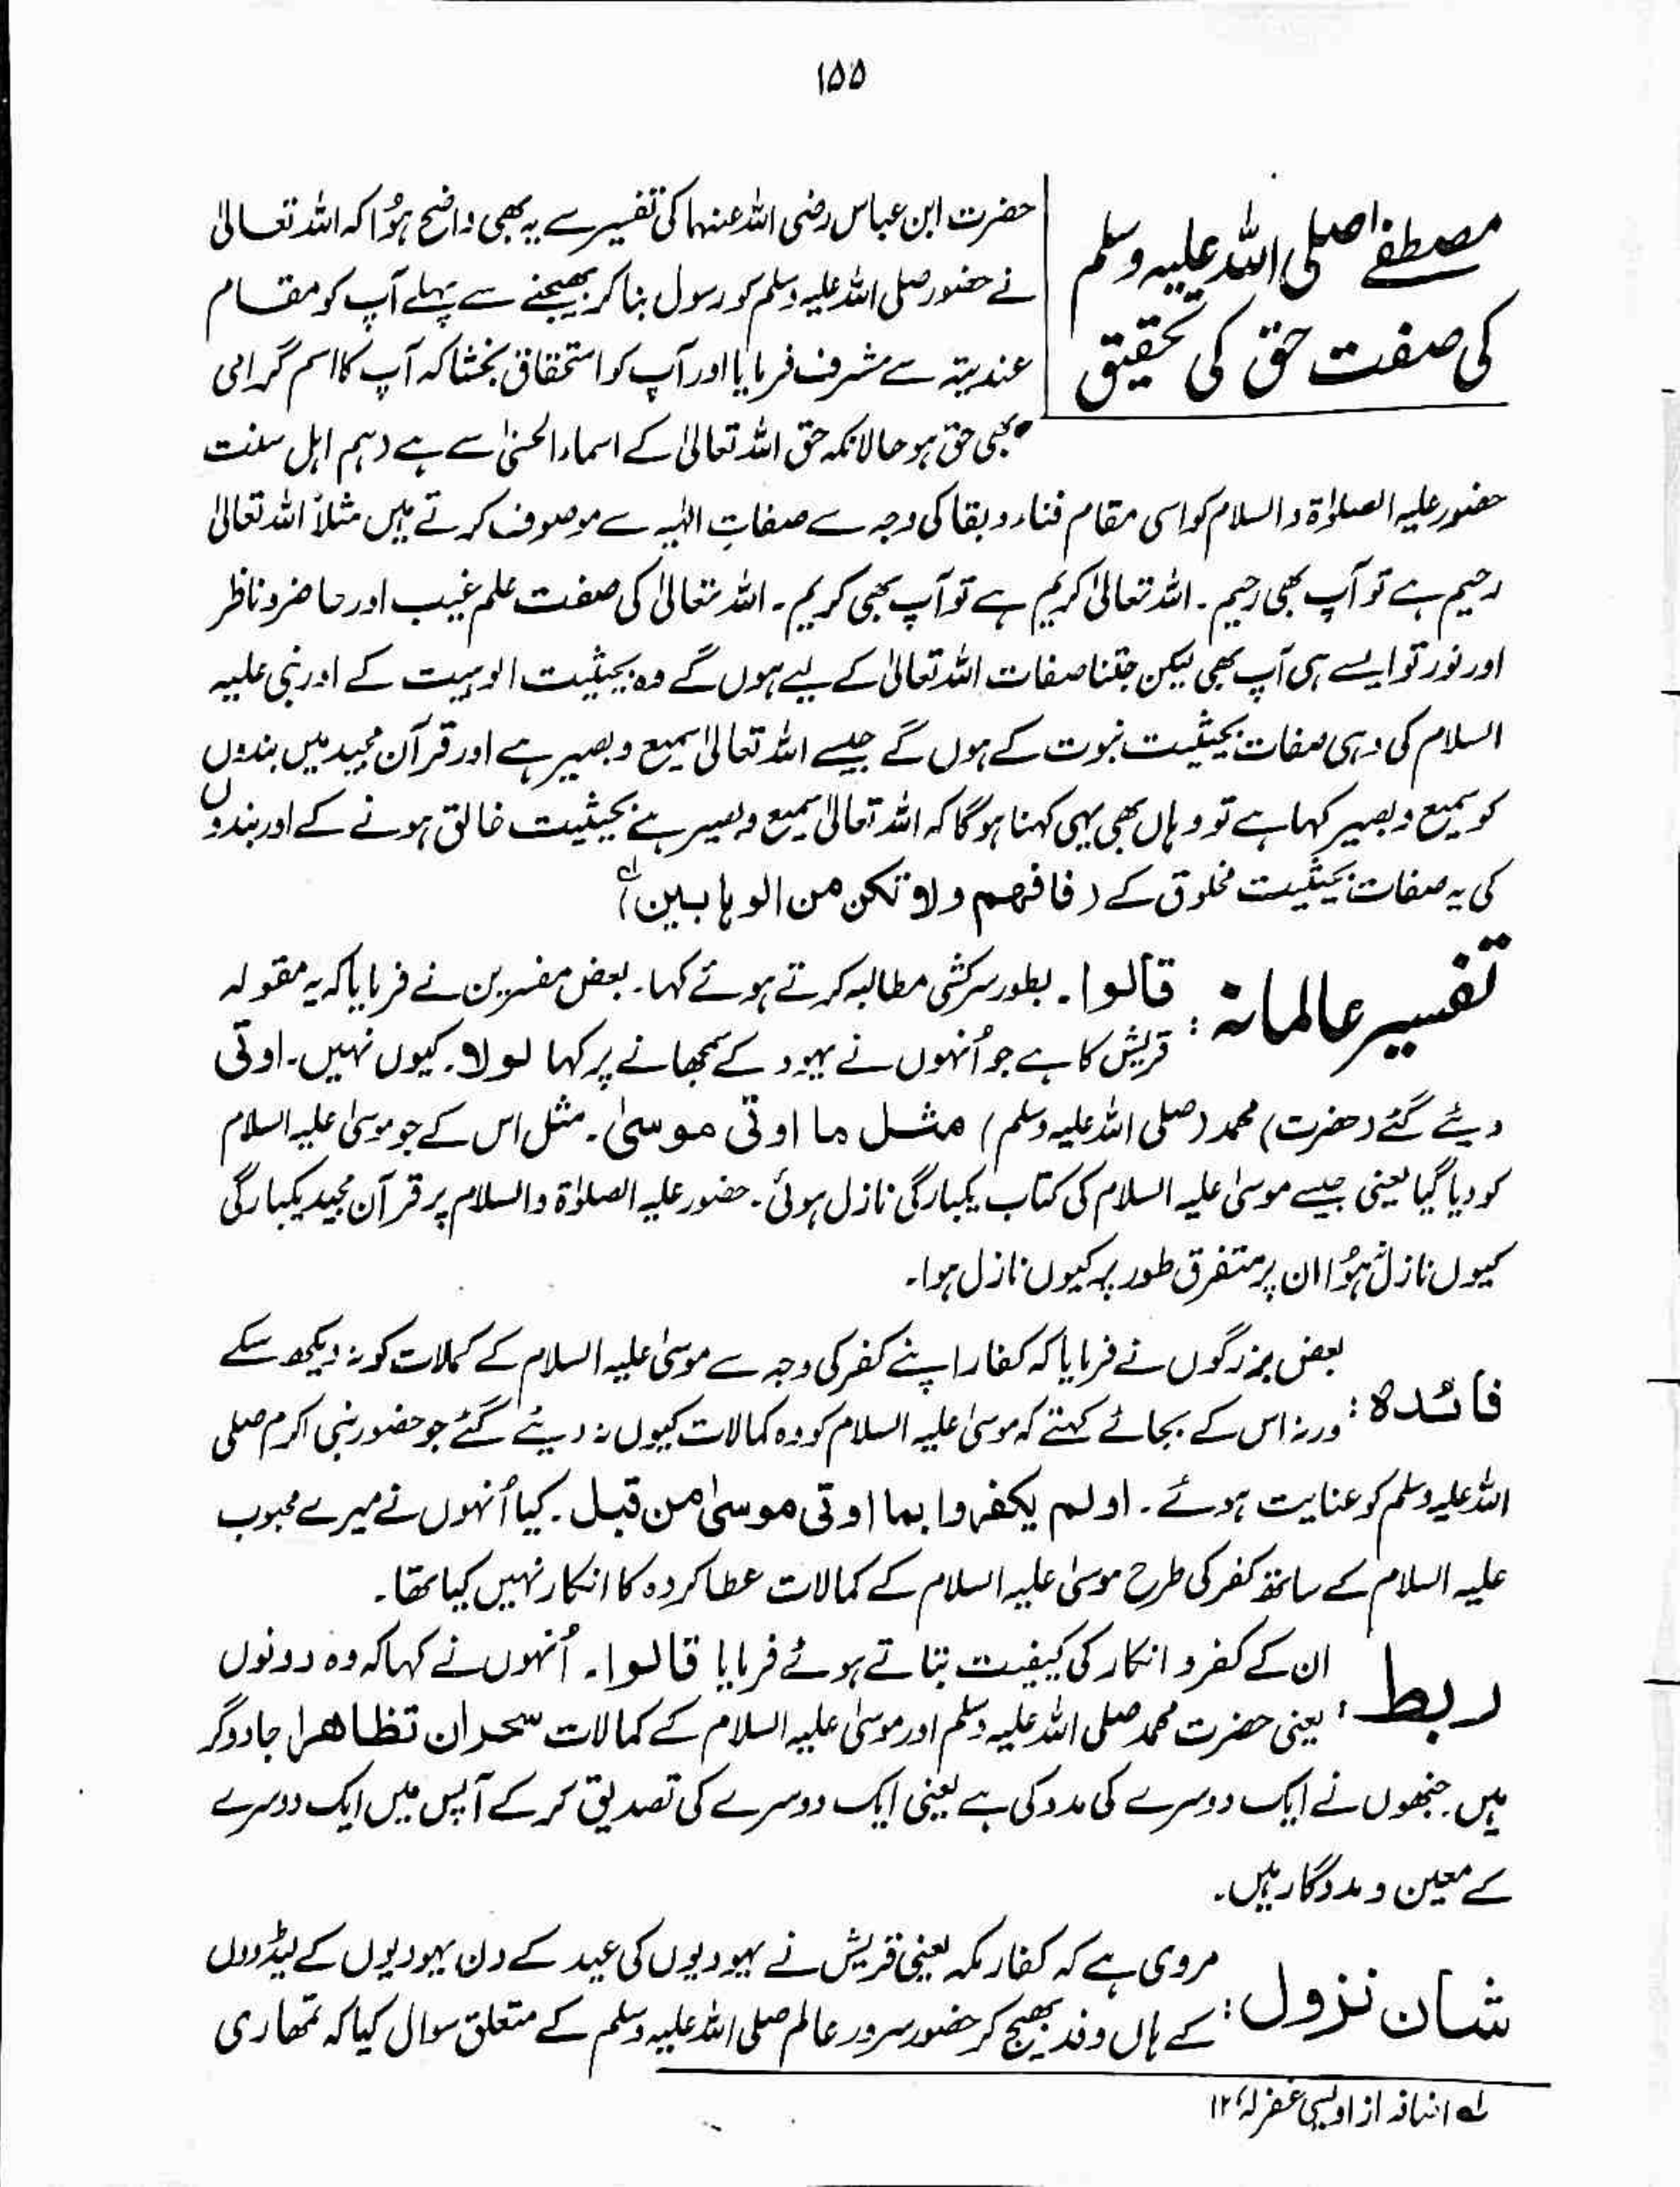 ۱۵۵
مصطفےٰ صلی اللہ علیہ وسلم
کی صفت حق کی تحقیق
حضرت ابن عباس رضی اللہ عنہما کی تفسیر سے یہ بھی واضح ہؤا کہ اللہ تعالیٰ
نے حضور صلی اللہ علیہ وسلم کو رسول بنا کر بھیجنے سے پہلے آپ کو مقام
عندیتہ سے مشرف فرمایا اور آپ کو استحقاق بخشا کہ آپ کا اسم گرامی
بھی حق ہو حالانکہ حق اللہ تعالیٰ کے اسماء الحسنیٰ سے ہے (ہم اہل سنت
حضور علیہ الصلوٰۃ والسلام کو اسی مقام فناء و بقا کی وجہ سے صفاتِ الٰہیہ سے موصوف کرتے ہیں مثلاً اللہ تعالیٰ
رحیم ہے تو آپ بھی رحیم ۔ اللہ تعالیٰ کریم ہے تو آپ بھی کریم ۔ اللہ تعالیٰ کی صفت علم غیب اور حاضر و ناظر
اور نور تو ایسے ہی آپ بھی لیکن جتنا صفات اللہ تعالیٰ کے لیے ہوں گے وہ بحیثیت الوہیت کے اور نبی علیہ
السلام کی وہی صفات بحیثیت نبوت کے ہوں گے جیسے اللہ تعالیٰ سمیع و بصیر ہے اور قرآن مجید میں بندوں
کو سمیع و بصیر کہا ہے تو وہاں بھی یہی کہنا ہوگا کہ اللہ تعالیٰ سمیع و بصیر ہے بحیثیت خالق ہونے کے اور بندوں
کی یہ صفات بحیثیت مخلوق کے (فافہم ولا تکن من الوہابین)؎۱
تفسیر عالمانہ : قالوا ۔ بطور سرکشی مطالبہ کرتے ہوئے کہا ۔ بعض مفسرین نے فرمایا کہ یہ مقولہ
قریش کا ہے جو اُنہوں نے یہود کے سمجھانے پر کہا لولا ۔ کیوں نہیں ۔ اوتی
دیئے گئے (حضرت) محمد (صلی اللہ علیہ وسلم) مثل ما اوتی موسیٰ ۔ مثل اس کے جو موسیٰ علیہ السلام
کو دیا گیا یعنی جیسے موسیٰ علیہ السلام کی کتاب یکبارگی نازل ہوئی ۔ حضور علیہ الصلوٰۃ والسلام پر قرآن مجید یکبارگی
کیوں نازل نہ ہؤا ان پر متفرق طور پر کیوں نازل ہوا ۔
فائدہ : بعض بزرگوں نے فرمایا کہ کفار اپنے کفر کی وجہ سے موسیٰ علیہ السلام کے کملات کو نہ دیکھ سکے
ورنہ اس کے بجائے کہتے کہ موسیٰ علیہ السلام کو وہ کمالات کیوں نہ دیئے گئے جو حضور نبی اکرم صلی
اللہ علیہ وسلم کو عنایت ہوئے ۔ اولم یکفروا بما اوتی موسیٰ من قبل ۔ کیا اُنہوں نے میرے محبوب
علیہ السلام کے ساتھ کفر کی طرح موسیٰ علیہ السلام کے کمالات عطا کردہ کا انکار نہیں کیا تھا ۔
ربط : ان کے کفر و انکار کی کیفیت بتاتے ہوئے فرمایا قالوا ۔ اُنہوں نے کہا کہ وہ دونوں
یعنی حضرت محمد صلی اللہ علیہ وسلم اور موسیٰ علیہ السلام کے کمالات سحران تظاھرا جادوگر
ہیں جنھوں نے ایک دوسرے کی مدد کی ہے یعنی ایک دوسرے کی تصدیق کر کے آپس میں ایک دوسرے
کے معین و مددگار ہیں ۔
شان نزول : مروی ہے کہ کفار مکہ یعنی قریش نے یہودیوں کی عید کے دن یہودیوں کے لیڈروں
کے ہاں وفد بھیج کر حضور سرور عالم صلی اللہ علیہ وسلم کے متعلق سوال کیا کہ تمھاری
؎۱ اضافہ از اویسی غفرلہ ۱۲